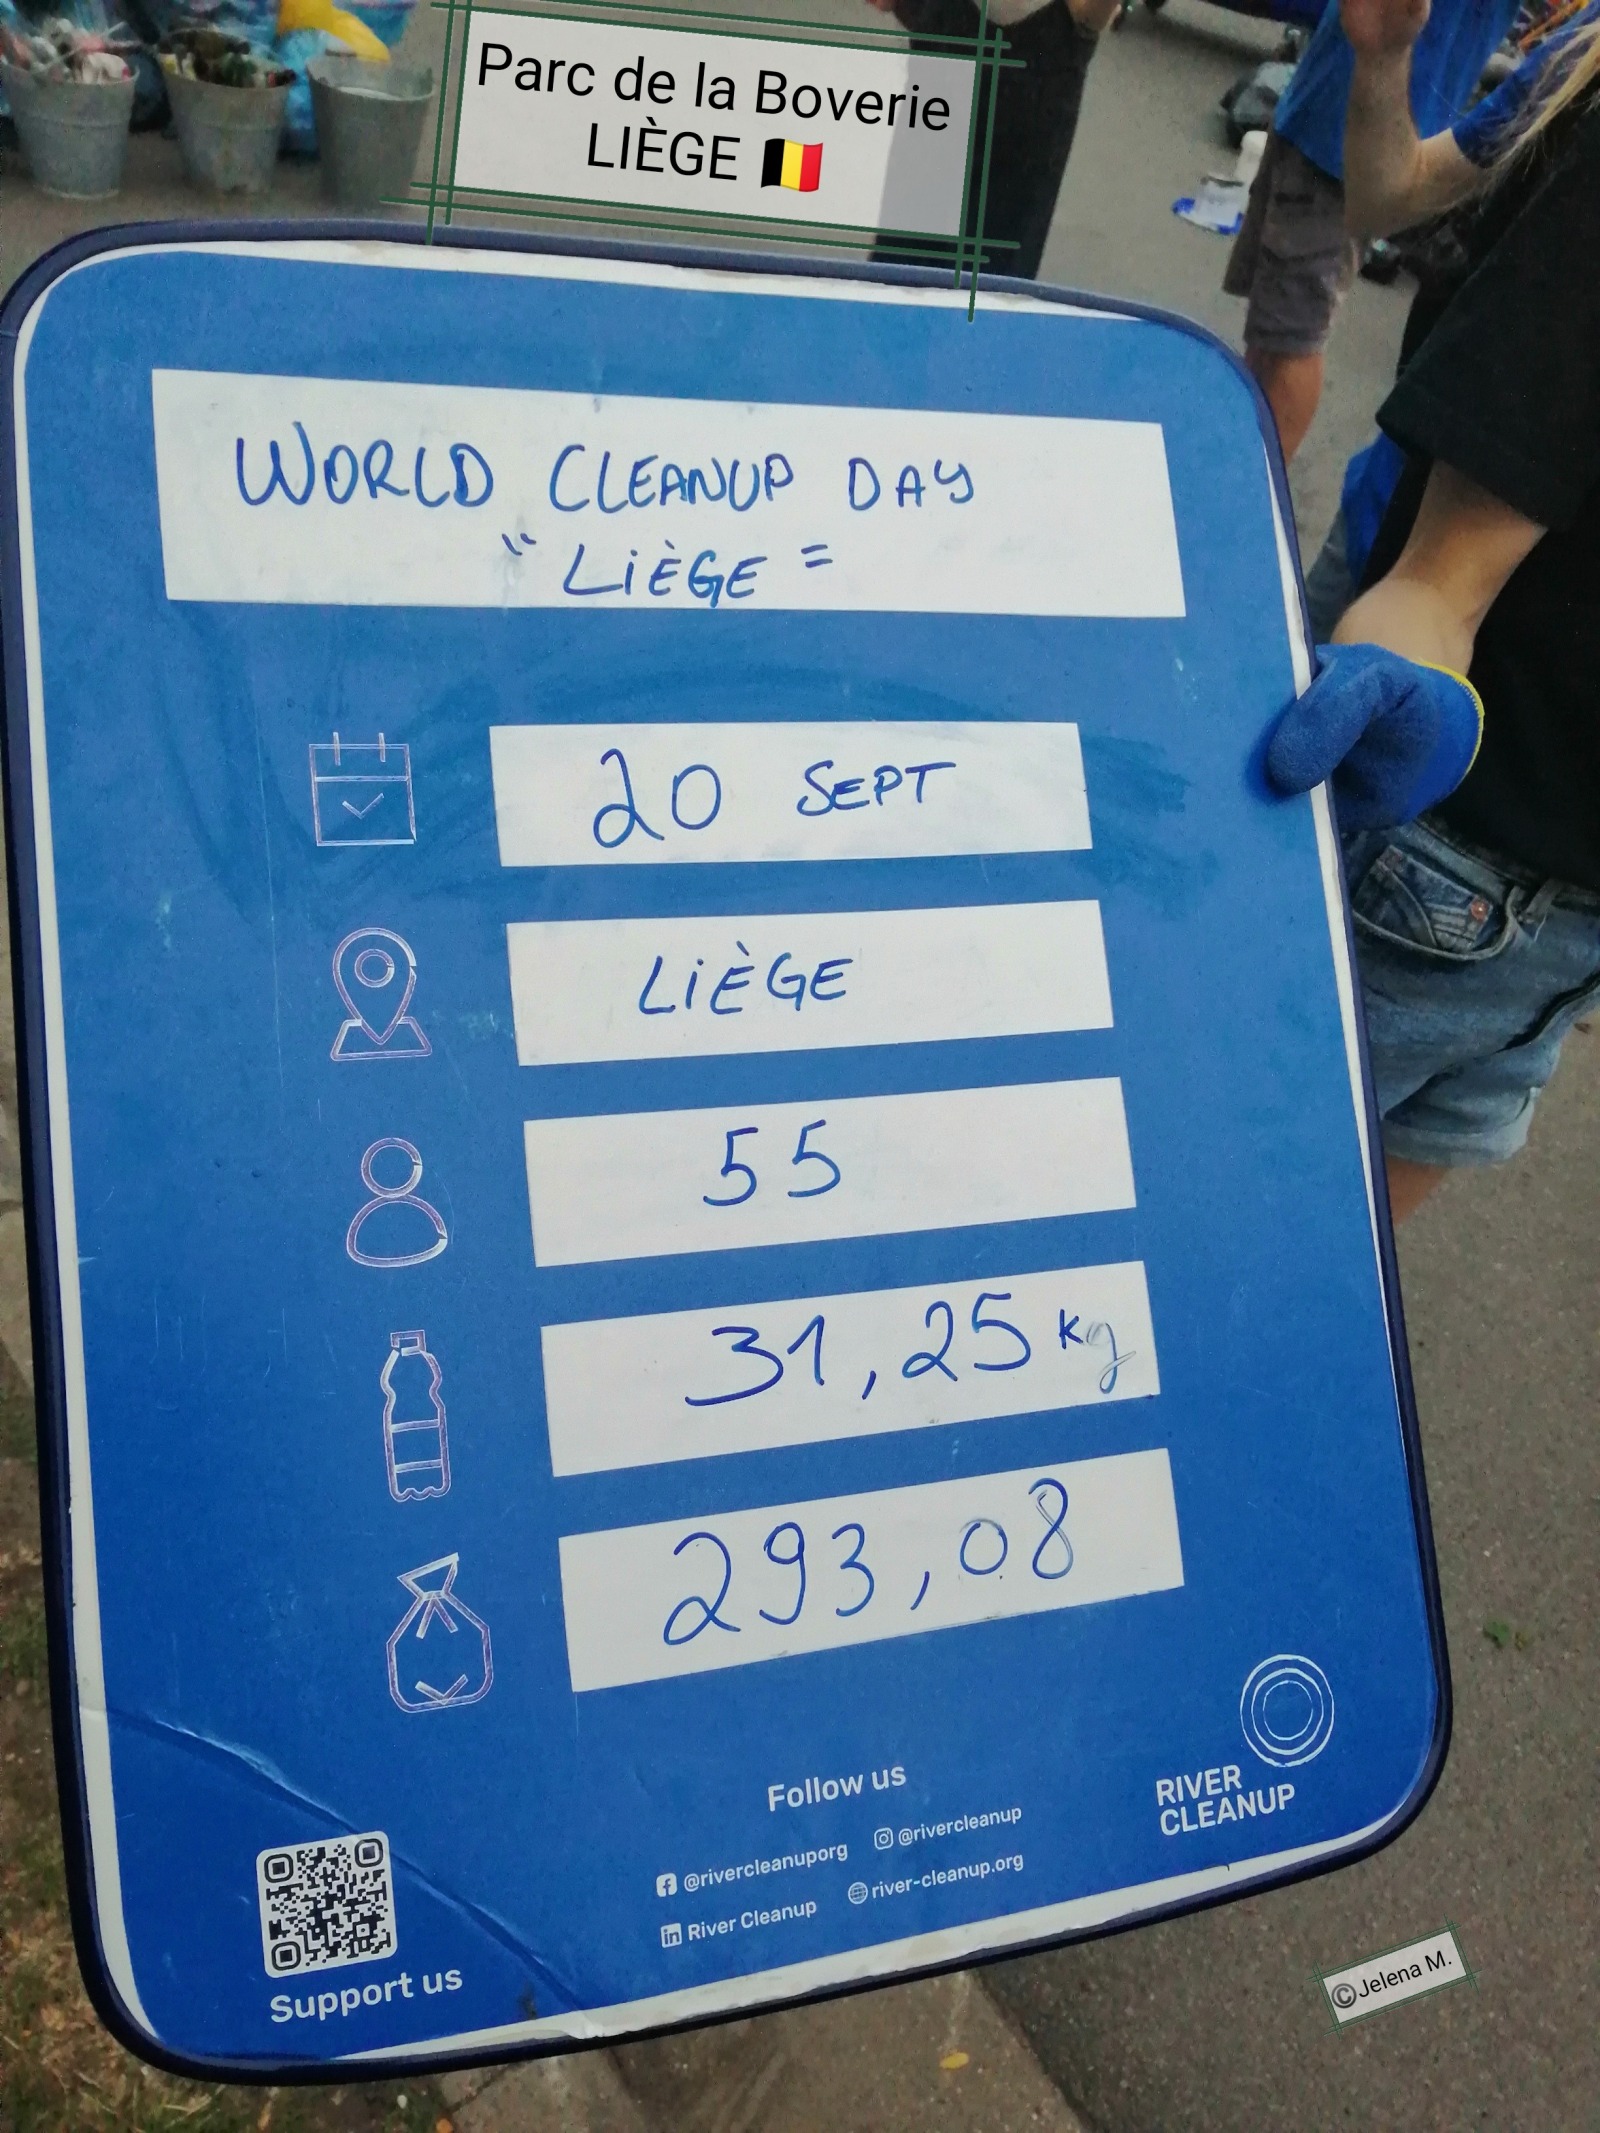 Parc de la Boverie
LIÈGE 🇧🇪
WORLD CLEANUP DAY
"LIÈGE"
20 SEPT
LIÈGE
55
31,25 kg
293,08
Follow us
@rivercleanuporg
@rivercleanup
River Cleanup
river-cleanup.org
RIVER
CLEANUP
Support us
©Jelena M.